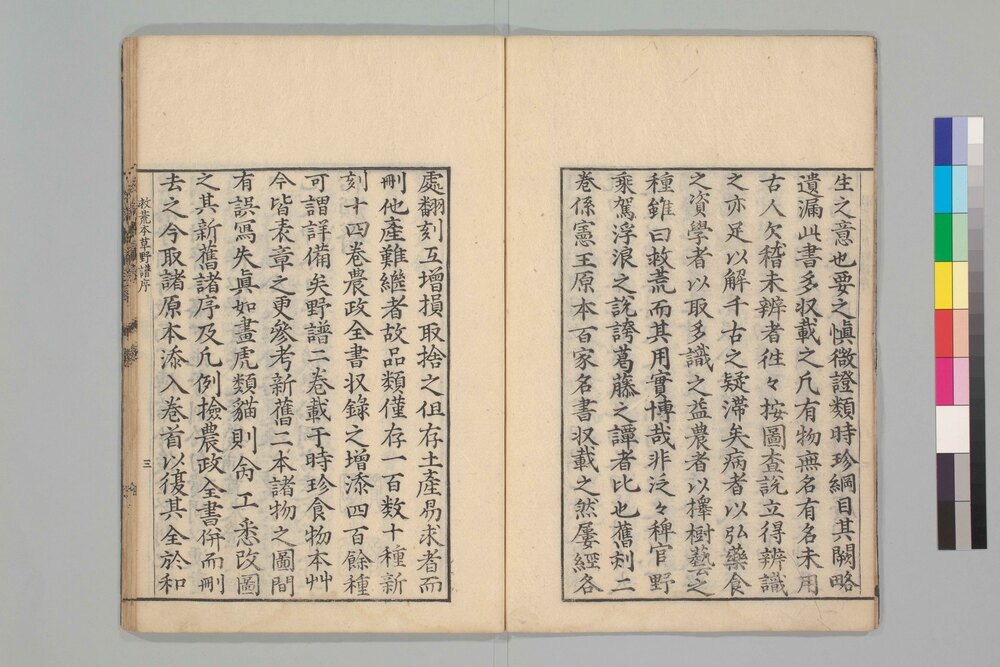 生之意也要之愼微證類時珍綱目其闕略
遺漏此書多収載之凡有物無名有名未用
古人欠稽未辨者徃々按圖査説立得辨識
之亦足以解千古之疑滞矣病者以弘藥食
之資學者以取多識之益農者以擇樹藝之
種雖曰救荒而其用實博哉非泛々稗官野
乗駕浮浪之説誇葛藤之譚者比也舊刻二
巻係憲王原本百家名書収載之然屢經各
處翻刻互增損取捨之伹存土產易求者而
刪他產難繼者故品類僅存一百数十種新
刻十四巻農政全書収錄之增添四百餘種
可謂詳備矣野譜二巻載于時珍食物本艸
今皆表章之更參考新舊二本諸物之圖間
有誤寫失眞如畫虎類貓則命工悉改圖
之其新舊諸序及凡例撿農政全書併而刪
去之今取諸原本添入巻首以復其全於和
救荒本草野譜序
三